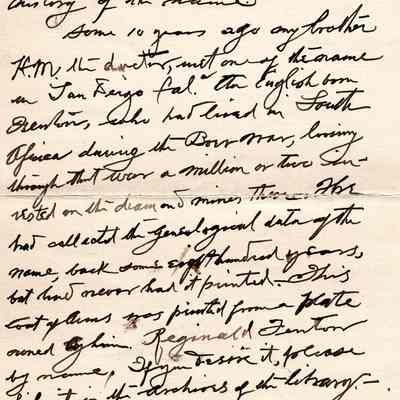 history of the name.
Some 10 years ago my brother
H.M, the doctor, met one of the name
in San Diego Cal. An English born
Fenton, who had lived in South
Africa during the Boer War, losing
through that war a million or two in-
vested on the diamond mines there. He
had collected the geneological data of the
name, back some eight hundred years,
but had never had it printed. This
Coat of Arms was printed from a plate
owned by him. Reginald Fenton
by name, If you desire it, please
in the archives of the library.-